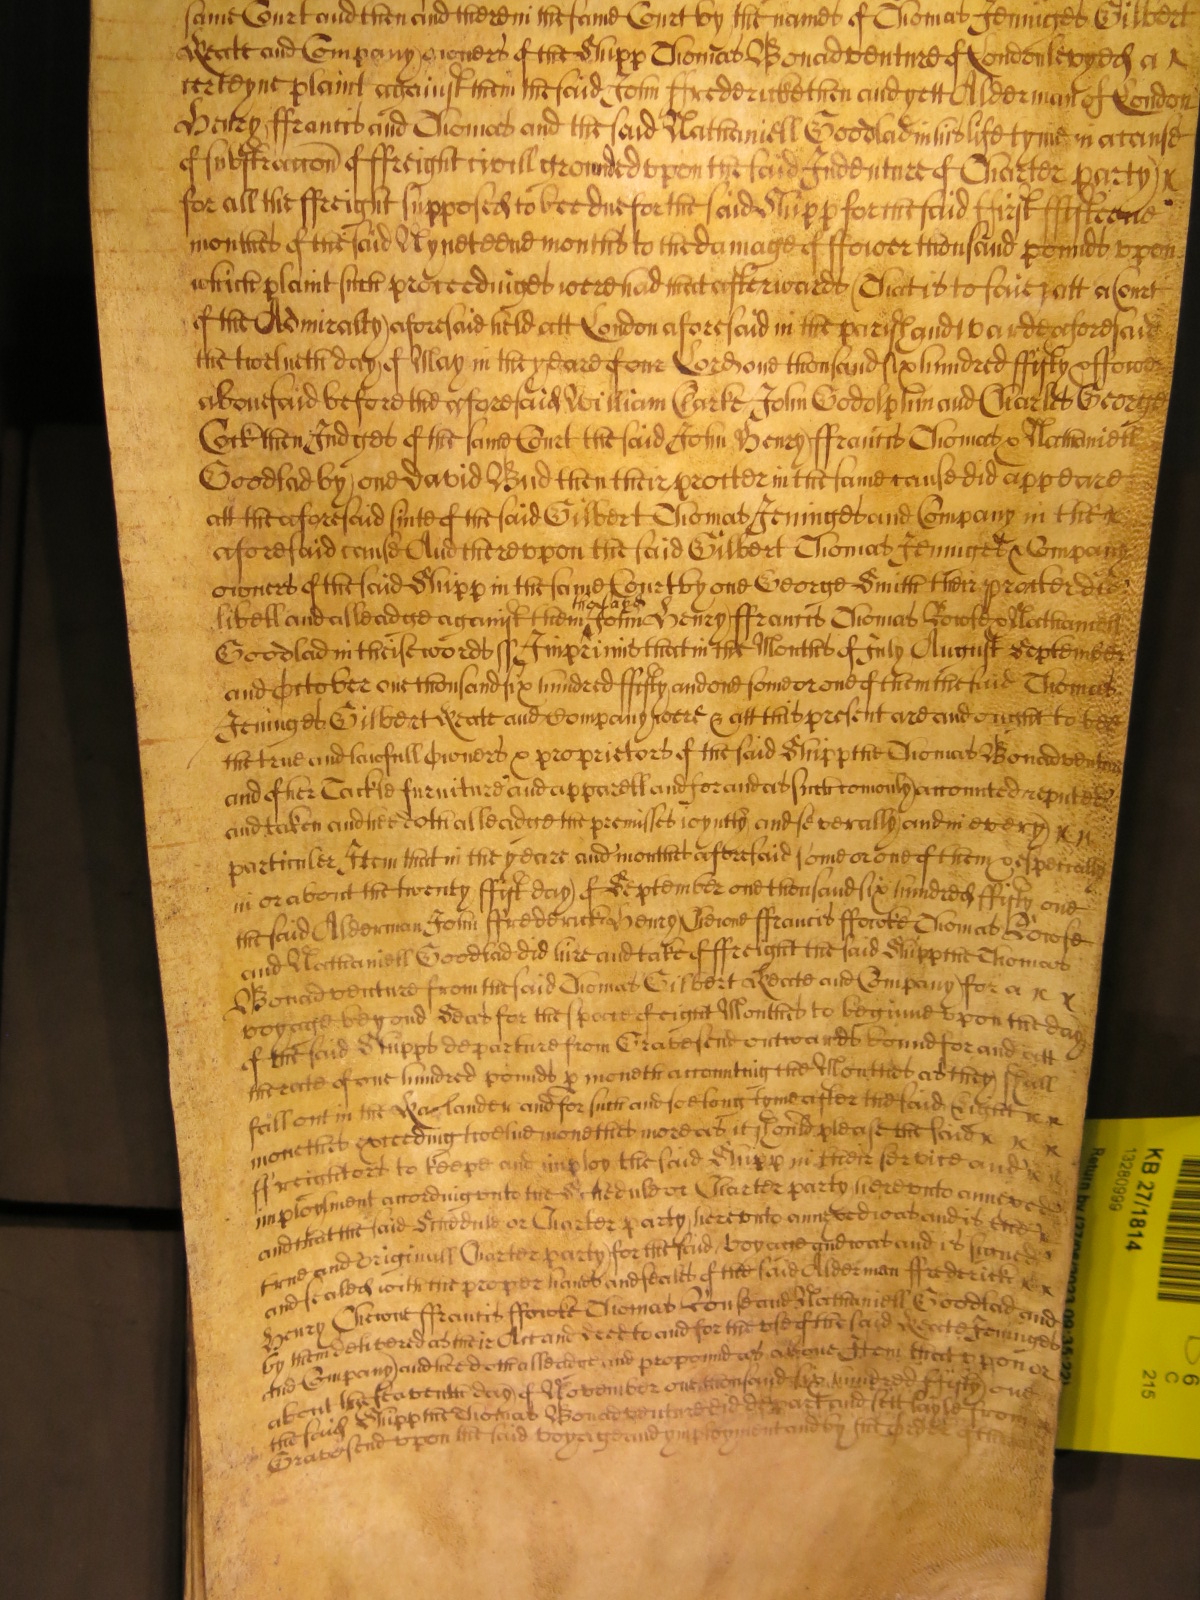 same Court and then and there in the same Court by the names of Thomas Jenninges Gilbert
Keate and Company owners of the Shipp Thomas Bonadventure of London levyed a x
certeyne plaint against them the said John ffrederick then and yett Alderman of London
Henry ffrancis and Thomas and the said Nathaniell Goodlad in his life tyme in a cause
of substraction of ffreight civill grounded upon the said Indenture of Charter party x
for all the ffreight supposed to bee due for the said Shipp for the said ffirst fffifteene
monthes of the said Nyneteene months to the damage of ffower thousand pounds upon
which plaint such proceedinges were had that afterwards (That is to saie) att a Court
of the Admiralty aforesaid held att London aforesaid in the parish and warde aforesaid
the twelueth day of May in the yeare of our Lord one thousand six hundred ffifty & ffower
abouesaid before the aforesaid William Clarke John Godolphin and Charles George
Cock then Judges of the same Court the said John Henry ffrancis Thomas & Nathaniell
Goodlad by one David Bud then their procter in the same cause did appeare
att the aforesaid suite of the said Gilbert Thomas Jeninges and Company in the x
aforesaid cause And thereupon the said Gilbert Thomas Jenninges & Company
owners of the said Shipp in the same Court by one George Smith their procter did
libell and alleadge against them the said John Henry ffrancis Thomas Rowse & Nathaniell
Goodlad in theise words ss Imprimis that in the Months of July August September
and October one thousand six hundred ffifty and one some or one of them the said Thomas
Jeninges Gilbert Keate and Company were & att this present are and ought to bee
the true and lawfull Owners & proprietors of the said Shipp the Thomas Bonadventure
and of her Tackle furniture and apparell and for and as such comonly accounted reputed
and taken and hee doth alleadge the premisses joyntly and severally and in every x x
particuler Item that in the yeare and monthes aforesaid some or one of them & especially
in or about the twenty ffift day of September one thousand six hundred ffifty one
the said Alderman John ffrederick Henry Chewne ffrancis ffowke Thomas Rowse
and Nathaniell Goodlad did hire and take of ffreight the said Shipp the Thomas
Bonadventure from the said Thomas Gilbert Keate and Company for a x x
voyage beyond Seas for the space of eight Monthes to beginne upon the day
of the said Shipps departure from Gravesend outwards bound for and att
the rate of one hundred pounds p moneth accounting the Monthes as they shall
fall out in the Kalander and for such and soe long tyme after the said eight x x
monethes exceeding twelue monethes more as it should please the said x x x
ffreightors to keepe and imploy the said Shipp in their service and x x
imployment according unto the Schedule or Charter party hereunto annexed
and that the said Schedule or Charter party hereunto annexed was and is the x
true and originall Charter party for the said voyage and was and is signed
and sealed with the proper hands and seales of the said Alderman ffrederick x x
Henry Chewne ffrancis ffowke Thomas Rouse and Nathaniell Goodlad and
by them delivered as their Act and Deed to and for the use of the said Keate Jeninges
and Company and hee doth alleadge and propound as aboue Item that upon or
about the seaventh day of November one thousand six hundred ffifty one
the said Shipp the Thomas Bonadventure did depart and sett sayle from x
Gravesend upon the said voyage and imployment and by the order of the said
KB 27/1814
13280999
C
215
6